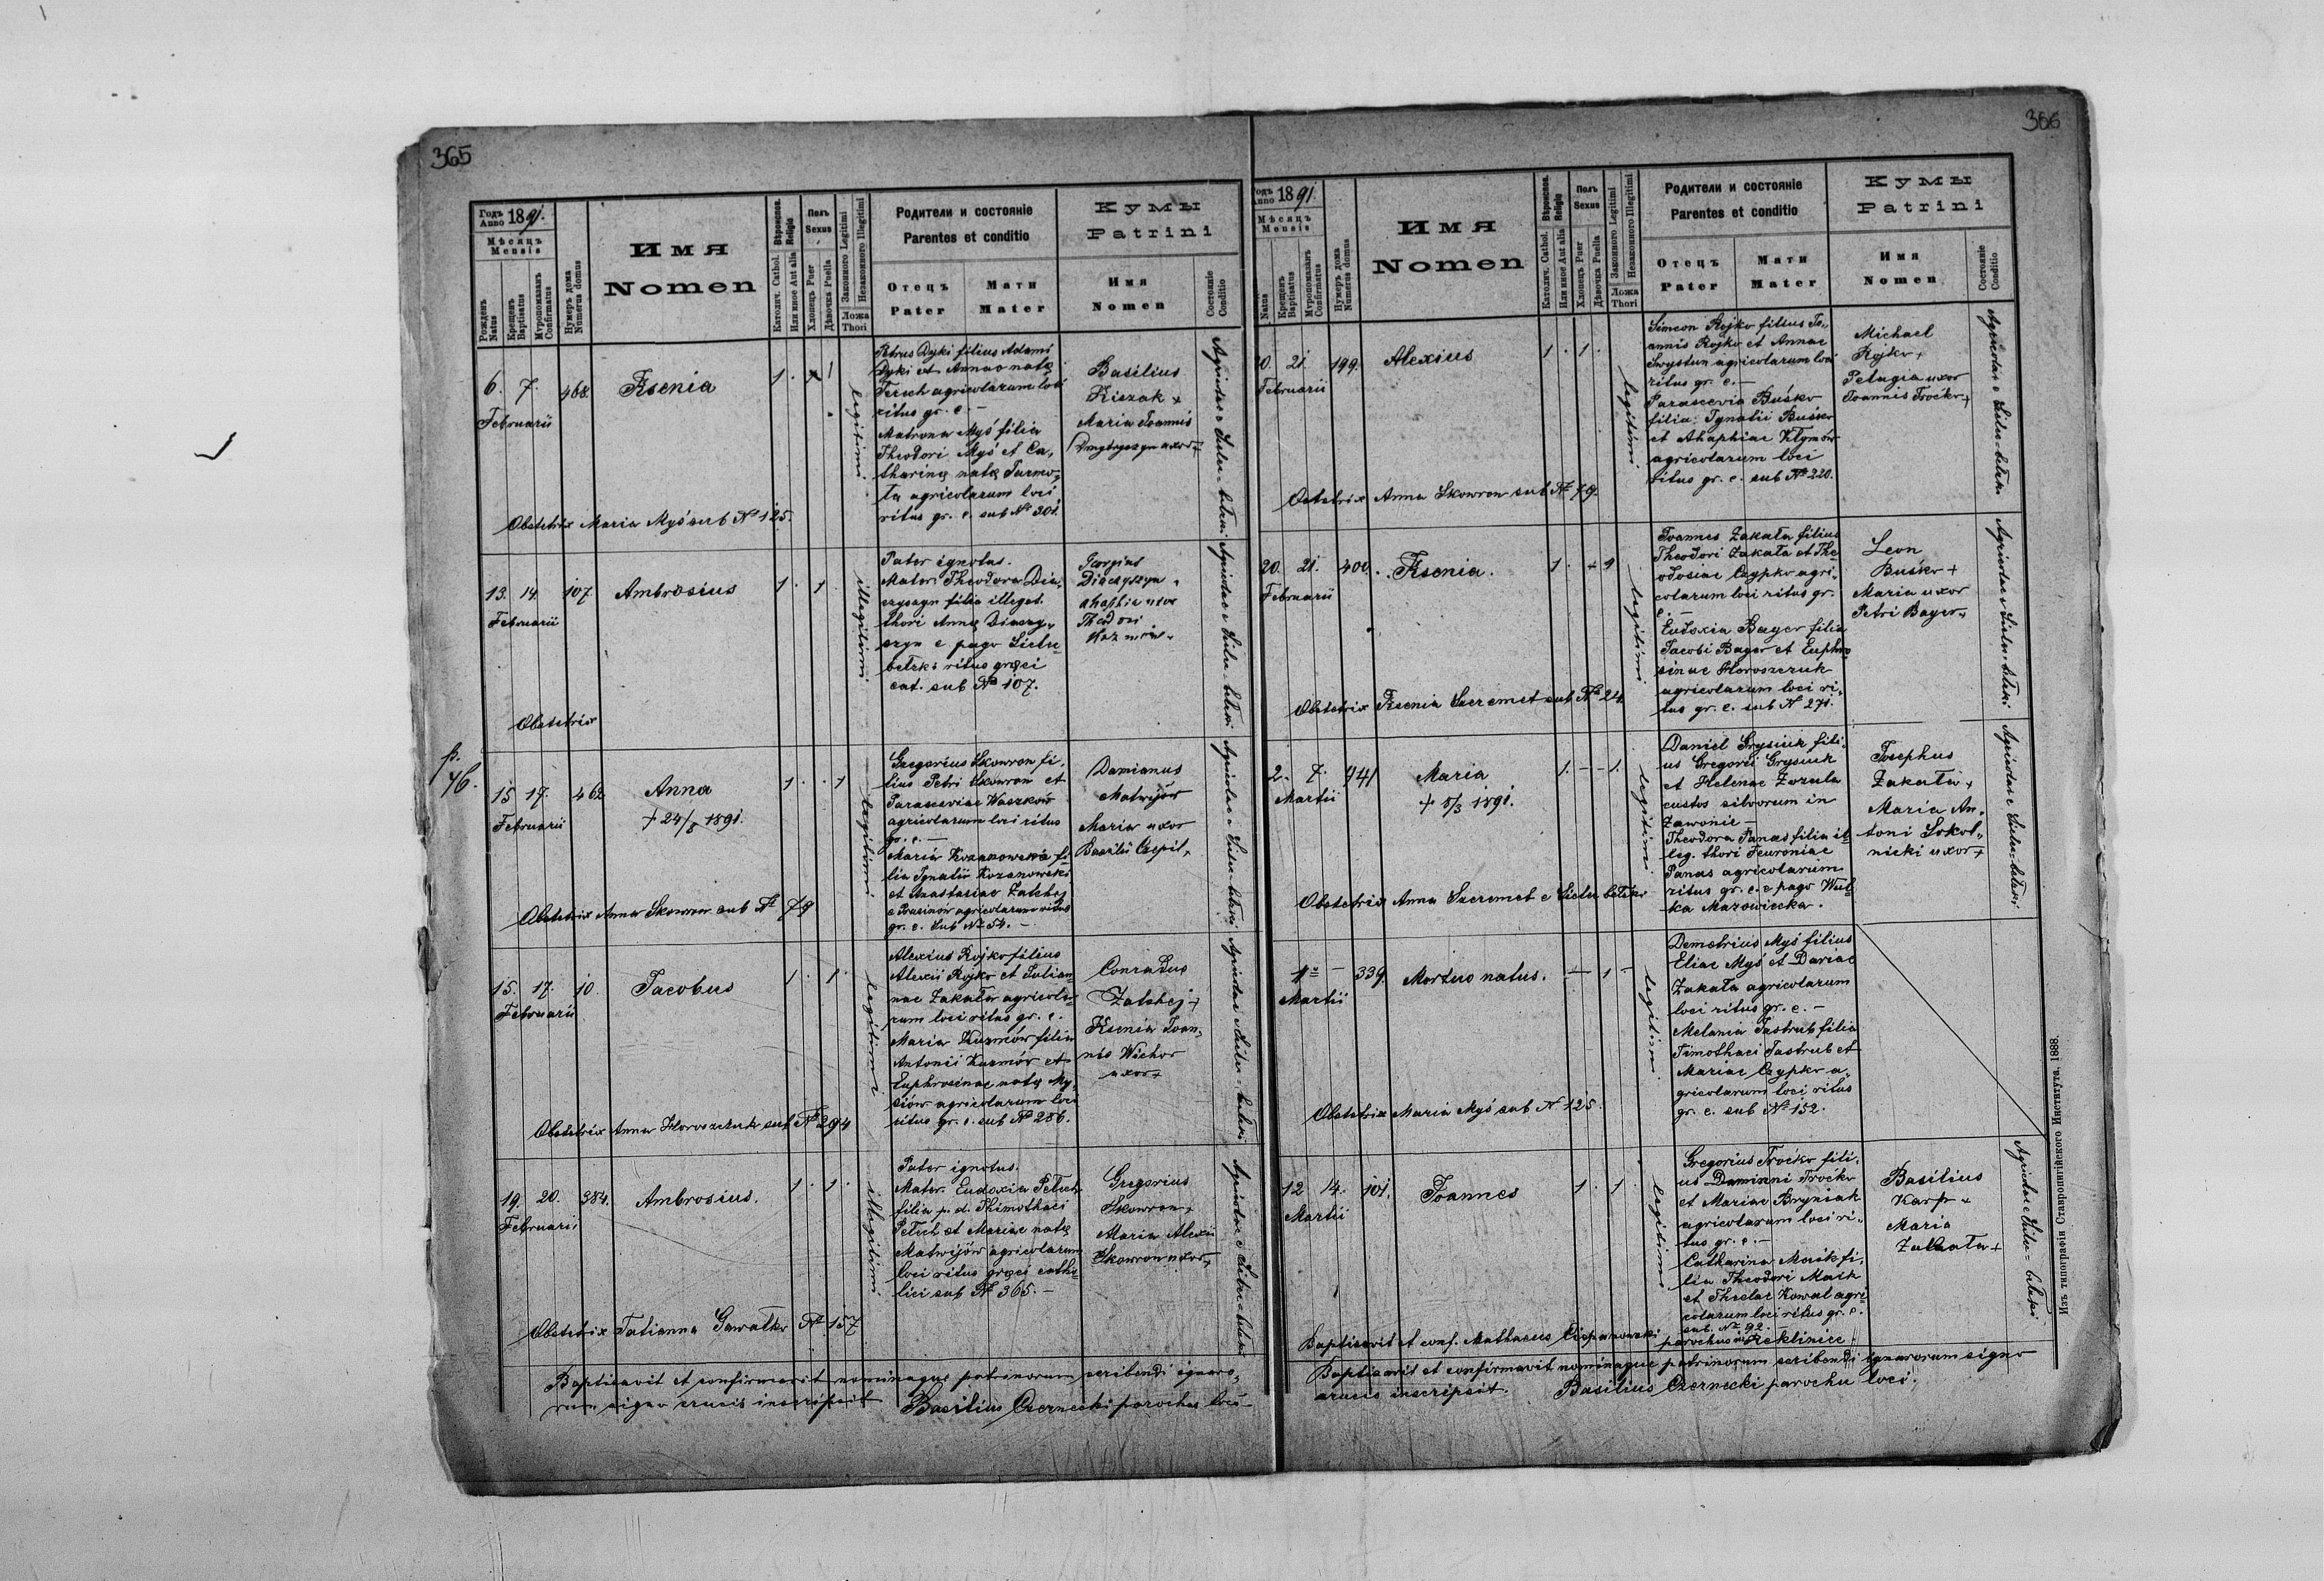 365
Годъ Anno 1891.
Мѣсяцъ
Mensis
Рожденъ Natus
Крещенъ Baptisatus
Мѵропомазанъ Confirmatus
Нумеръ дома Numerus domus
Имя
Nomen
Вѣроиспов. Religio
Католич. Cathol.
Или иное Aut alia
Полъ Sexus
Хлопецъ Puer
Дѣвочка Puella
Законного Legitimi
Незаконного Illegitimi
Ложа Thori
Родители и состояніе
Parentes et conditio
Отецъ
Pater
Мати
Mater
Кумы
Patrini
Имя
Nomen
Состояніе Conditio
6. 7. 468. Ksenia 1. 1
Februarii
legitimi
Petrus Dyki filius Adami
Dyki et Annae natę
Ferech agricolarum loci
ritus gr. c. –
Matrona Myś filia
Theodori Myś et Ca,
tharinę natę Turmo,
ta agricolarum loci
ritus gr. c. sub № 301.
Basilius
Kiszak +
Maria Joannis
Dmytryszyn uxor +
Obstetrix Maria Myś sub № 125.
13. 14. 107 Ambrosius 1. 1.
Februarii
illegitimi
Pater ignotus.
Mater: Theodora Dia,
czyszyn filia illegit.
thori Annę Diaczy,
szyn e pago Sielec
bełzki ritus gręci
cat. sub № 107.
Georgius
Diaczyszyn
Ahaphia uxor
Theodori
Kuzmów
Obstetrix
p. 46.
15 17. 462 Anna 1. . 1
Februarii
+ 24/8 1891.
legitimi
Gregorius Skowron fi,
lius Petri Skowron et
Parasceviae Waszków
agricolarum loci ritus
gr. c. –
Maria Kozanowska fi
lia Ignatii Kozanowski
et Anastasiae Zatchej
e Prusinów agricolarum ritus
gr. c. sub № 54. –
Damianus
Matwijów
Maria uxor
Basilii Czepil +
Obstetrix Anna Skowron sub № 79
15. 17. 10. Jacobus 1. 1.
Februarii
legitimi
Alexius Rojko filius
Alexii Rojko et Julian
nae Zakała agricola,
rum loci ritus gr. c.
Maria Kuzmów filia
Antonii Kuzmów et
Euphrosinae natę My,
siów agricolarum loci
ritus gr. c. sub № 286.
Conradus
Zatchej +
Ksenia Joan,
nis Wichor
uxor +
Obstetrix Anna Horoszczuk sub № 294
19. 20. 384. Ambrosius. 1. 1.
Februarii
illegitimi
Pater ignotus.
Mater. Eudoxia Petech
filia p. d. Thimothaei
Petech et Mariae natę
Matwijów agricolarum
loci ritus gręci catho
lici sub № 365. –
Gregorius
Skowron +
Maria Alexii
Skowron uxor +
Obstetrix Tatianna Gawalko № 157
Baptisavit et confirmavit nominaque patrinorum scribendi ignaro,
rum signo crucis inscripsit Basilius Czernecki parochus loci
366
Годъ Anno 1891.
Мѣсяцъ
Mensis
Natus
Крещенъ Baptisatus
Мѵропомазанъ Confirmatus
Нумеръ дома Numerus domus
Имя
Nomen
Вѣроиспов. Religio
Католич. Cathol.
Или иное Aut alia
Полъ Sexus
Хлопецъ Puer
Дѣвочка Puella
Законного Legitimi
Незаконного Illegitimi
Ложа Thori
Родители и состояніе
Parentes et conditio
Отецъ
Pater
Мати
Mater
Кумы
Patrini
Имя
Nomen
Состояніе Conditio
20. 21. 199. Alexius 1. 1.
Februarii
legitimi
Simeon Rojko filius Jo,
annis Rojko et Annae
Swystun agricolarum loci
ritus gr. c. –
Parascevia Buśko
filia Ignatii Buśko
et Ahaphiae Klymów
agricolarum loci
ritus gr. c. sub № 220.
Michael
Rojko +
Pelagia uxor
Joannis Troćko +
Obstetrix Anna Skowron sub № 79.
20. 21. 400. Ksenia. 1. 1
Februarii
legitimi
Joannes Zakała filius
Theodori Zakała et The
odosiae Czypko agri,
colarum loci ritus gr.
c. –
Eudoxia Bayer filia
Jacobi Bayer et Euphro
sinae Horoszczuk
agricolarum loci ri,
tus gr. c. sub № 271.
Leon
Buśko +
Maria uxor
Petri Bayer
Obstetrix Ksenia Szeremet sub № 24.
2. 7. 441 Maria 1. – – 1.
Martii
+ 8/3 1891.
legitimi
Daniel Grysiuk fili,
us Gregorii Grysiuk
et Helenae Zozula
custos silvorum in
Zawonie –
Theodora Panas filia il
leg. thori Fevroniae
Panas agricolarum
ritus gr. c. e pago Wul
ka Mazowiecka.
Josephus
Zakała +
Maria An,
toni Sokol,
nicki uxor +
Obstetrix Anna Szeremet e Sielec bełzki
1 – 339. Mortuo natus. – 1 –
Martii
legitimi
Demetrius Myś filius
Eliae Myś et Dariae
Zakała agricolarum
loci ritus gr. c. –
Melania Jastrub filia
Timothaei Jastrub et
Mariae Czypko a,
gricolarum loci ritus
gr. c. sub № 152.
Obstetrix Maria Myś sub № 125.
12 14. 101. Joannes 1. 1.
Martii
legitimi
Gregorius Troćko fili,
us Damiani Troćko
et Mariae Bryniak
agricolarum loci ri,
tus gr. c. –
Catharina Maik fi,
lia Theodori Maik
et Theclae Kowal agri
colarum loci ritus gr. c.
sub. № 92.
Basilius
Karp
Maria
Zakała +
Baptisavit et conf. Mathaeus parochus
Baptisavit et confirmavit nominaque patrinorum scribendi ignarorum signo
crucis inscripsit. Basilius Czernecki parochu loci.
Изъ типографіи Ставропигійского Института, 1888.